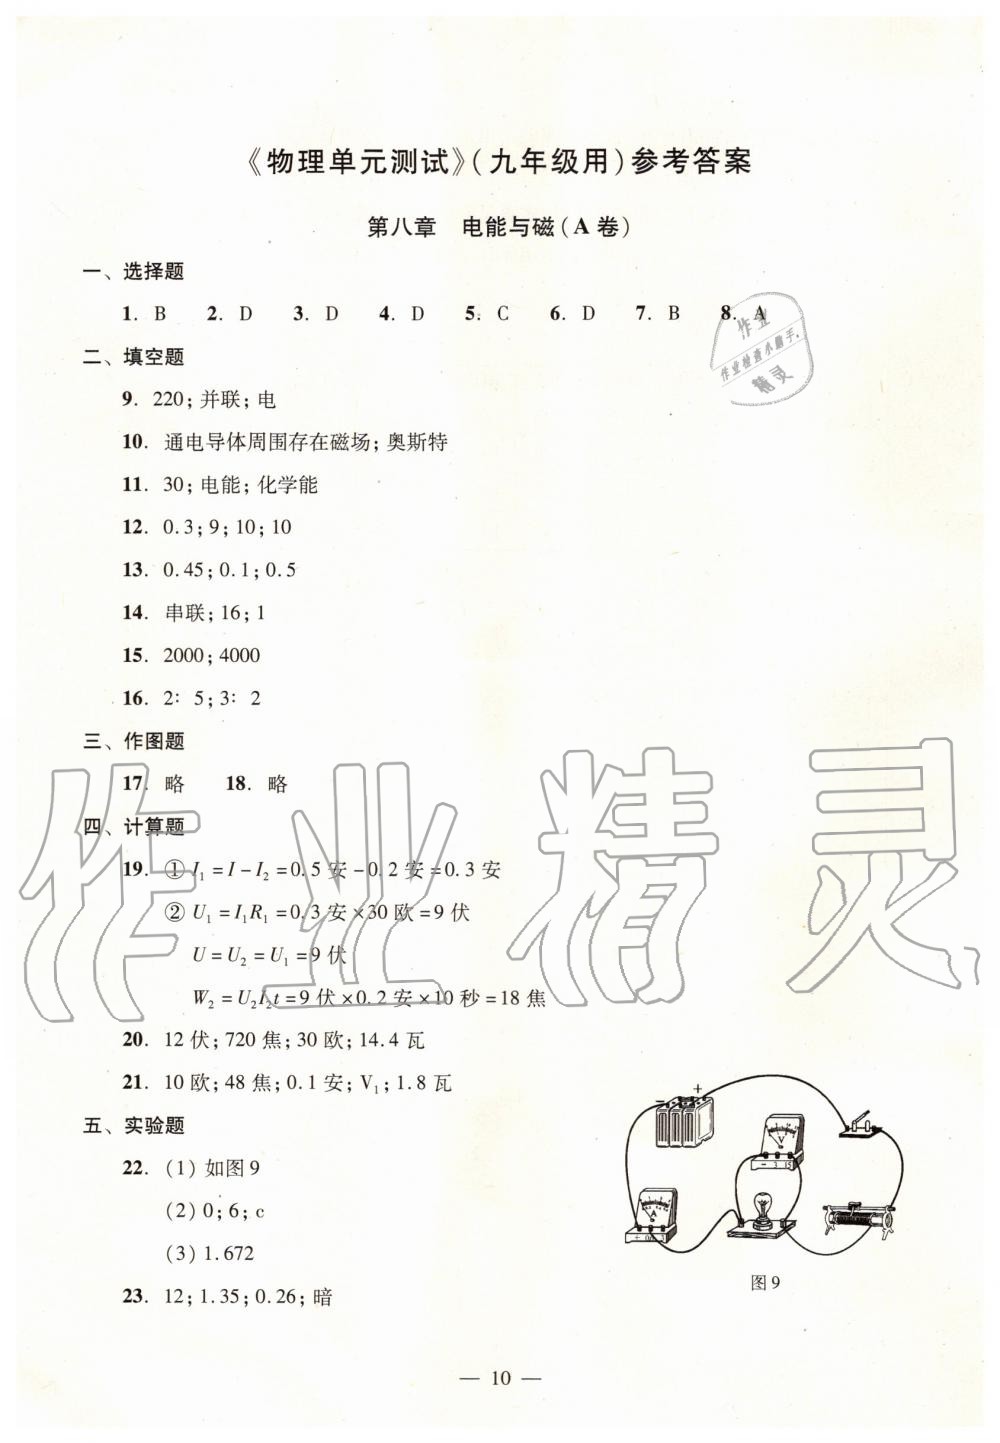 《物理单元测试》(九年级用)参考答案
第八章 电能与磁(A 卷)
一、选择题
1. B 2. D 3. D 4. D 5. C 6. D 7. B 8. A
二、填空题
9. 220;并联;电
10. 通电导体周围存在磁场;奥斯特
11. 30;电能;化学能
12. 0.3;9;10;10
13. 0.45;0.1;0.5
14. 串联;16;1
15. 2000;4000
16. 2∶5;3∶2
三、作图题
17. 略 18. 略
四、计算题
19. ① I₁=I-I₂=0.5安-0.2安=0.3安
② U₁=I₁R₁=0.3安×30欧=9伏
U=U₂=U₁=9伏
W₂=U₂I₂t=9伏×0.2安×10秒=18焦
20. 12伏;720焦;30欧;14.4瓦
21. 10欧;48焦;0.1安;V₁;1.8瓦
五、实验题
22. (1) 如图9
(2) 0;6;c
(3) 1.672
23. 12;1.35;0.26;暗
- +
V
- 3 15
A
图9
— 10 —
作业
作业检查小助手
精灵
作业精灵